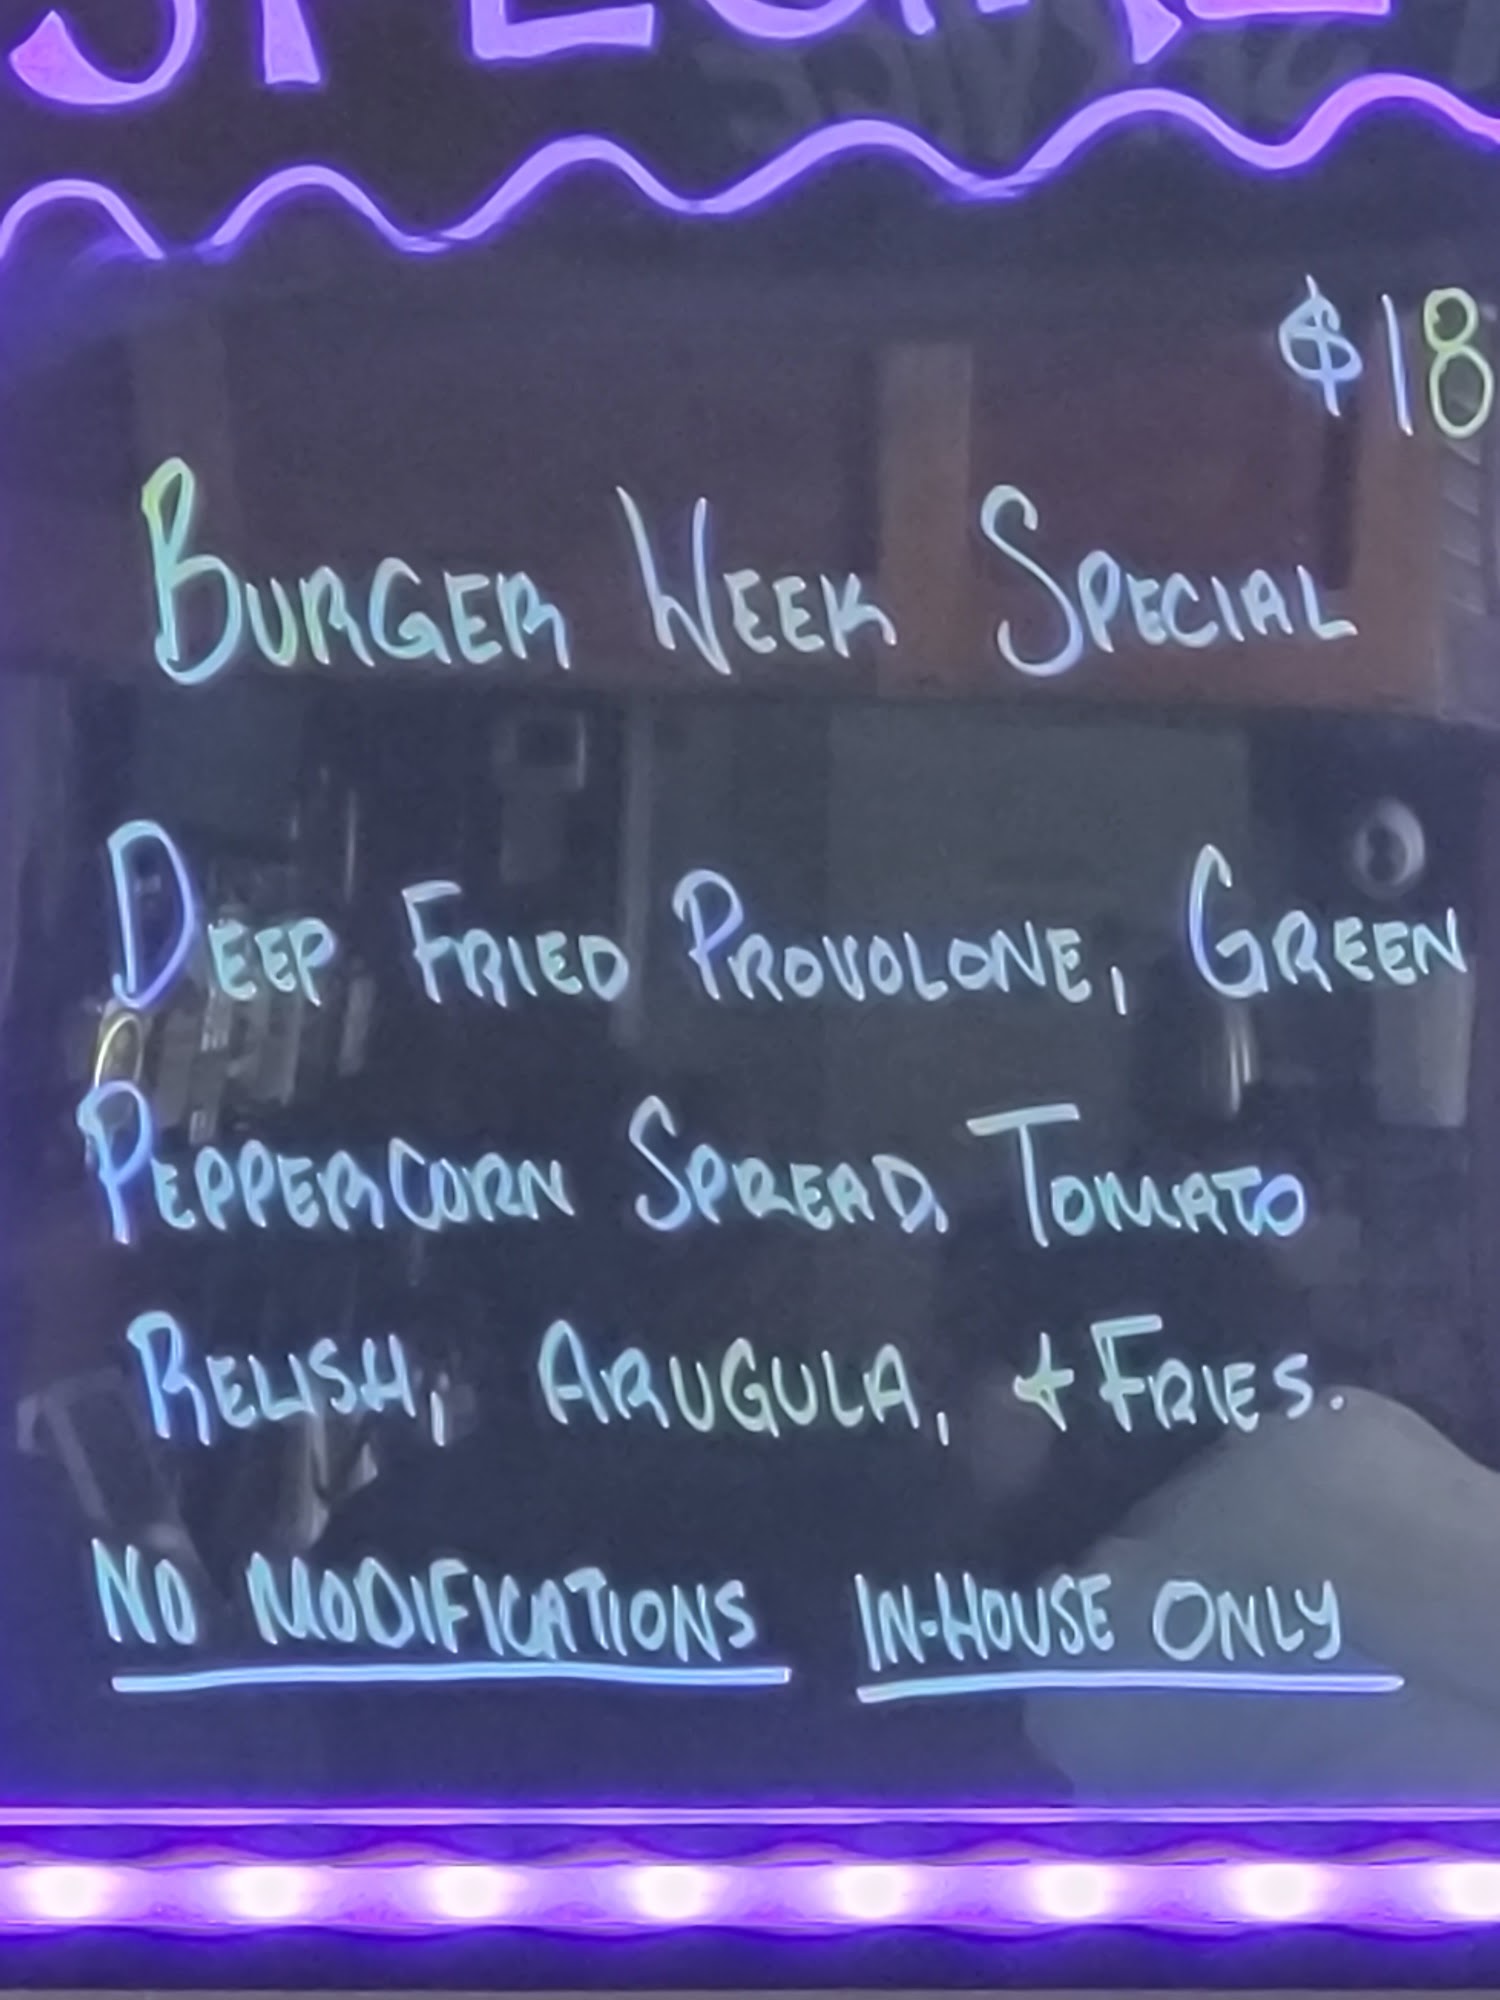 SPECIAL
$18
BURGER WEEK SPECIAL
DEEP FRIED PROVOLONE, GREEN
PEPPERCORN SPREAD, TOMATO
RELISH, ARUGULA, + FRIES.
NO MODIFICATIONS IN-HOUSE ONLY